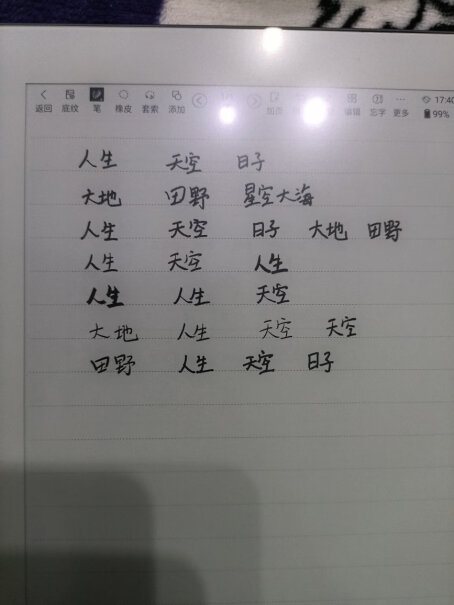 返回 底纹 笔 橡皮 套索 添加 忘字 更多 17:40 99%
人生 天空 日子
大地 田野 星空大海
人生 天空 日子 大地 田野
人生 天空 人生
人生 人生 天空
大地 人生 天空 天空
田野 人生 天空 日子